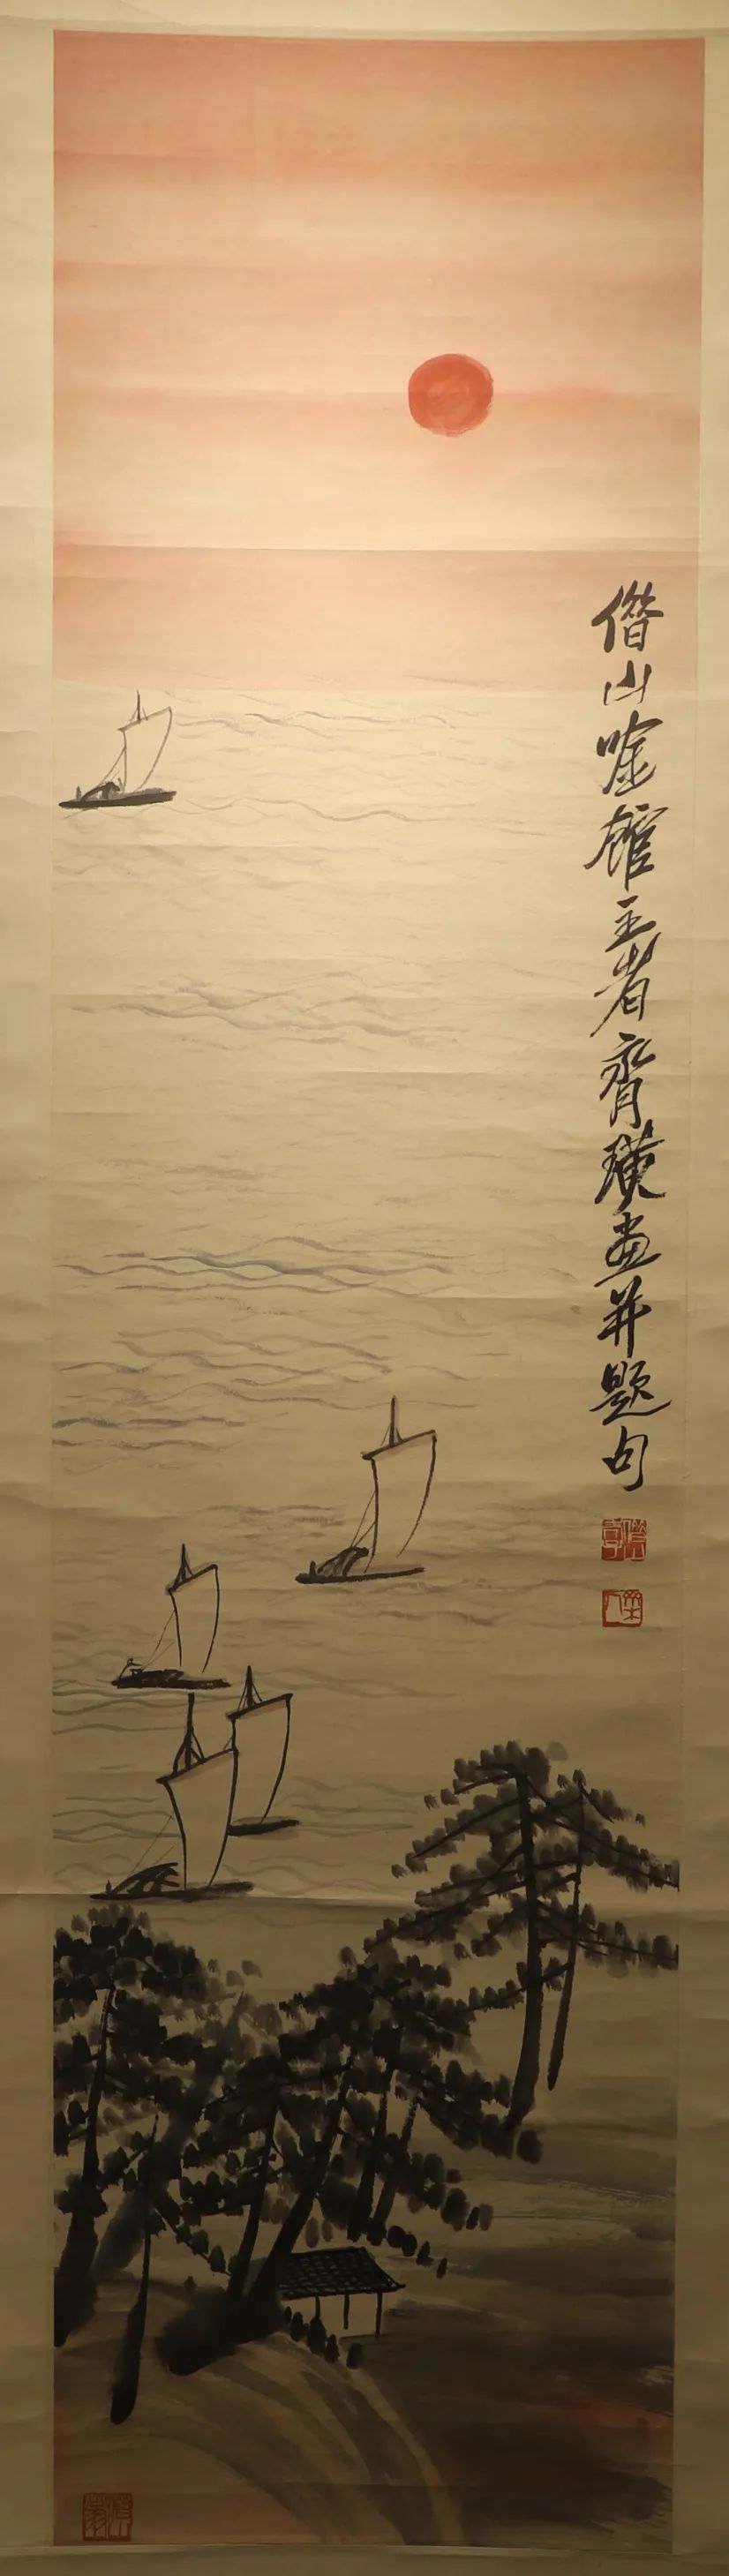 借山唫館主者齊璜畫并題句